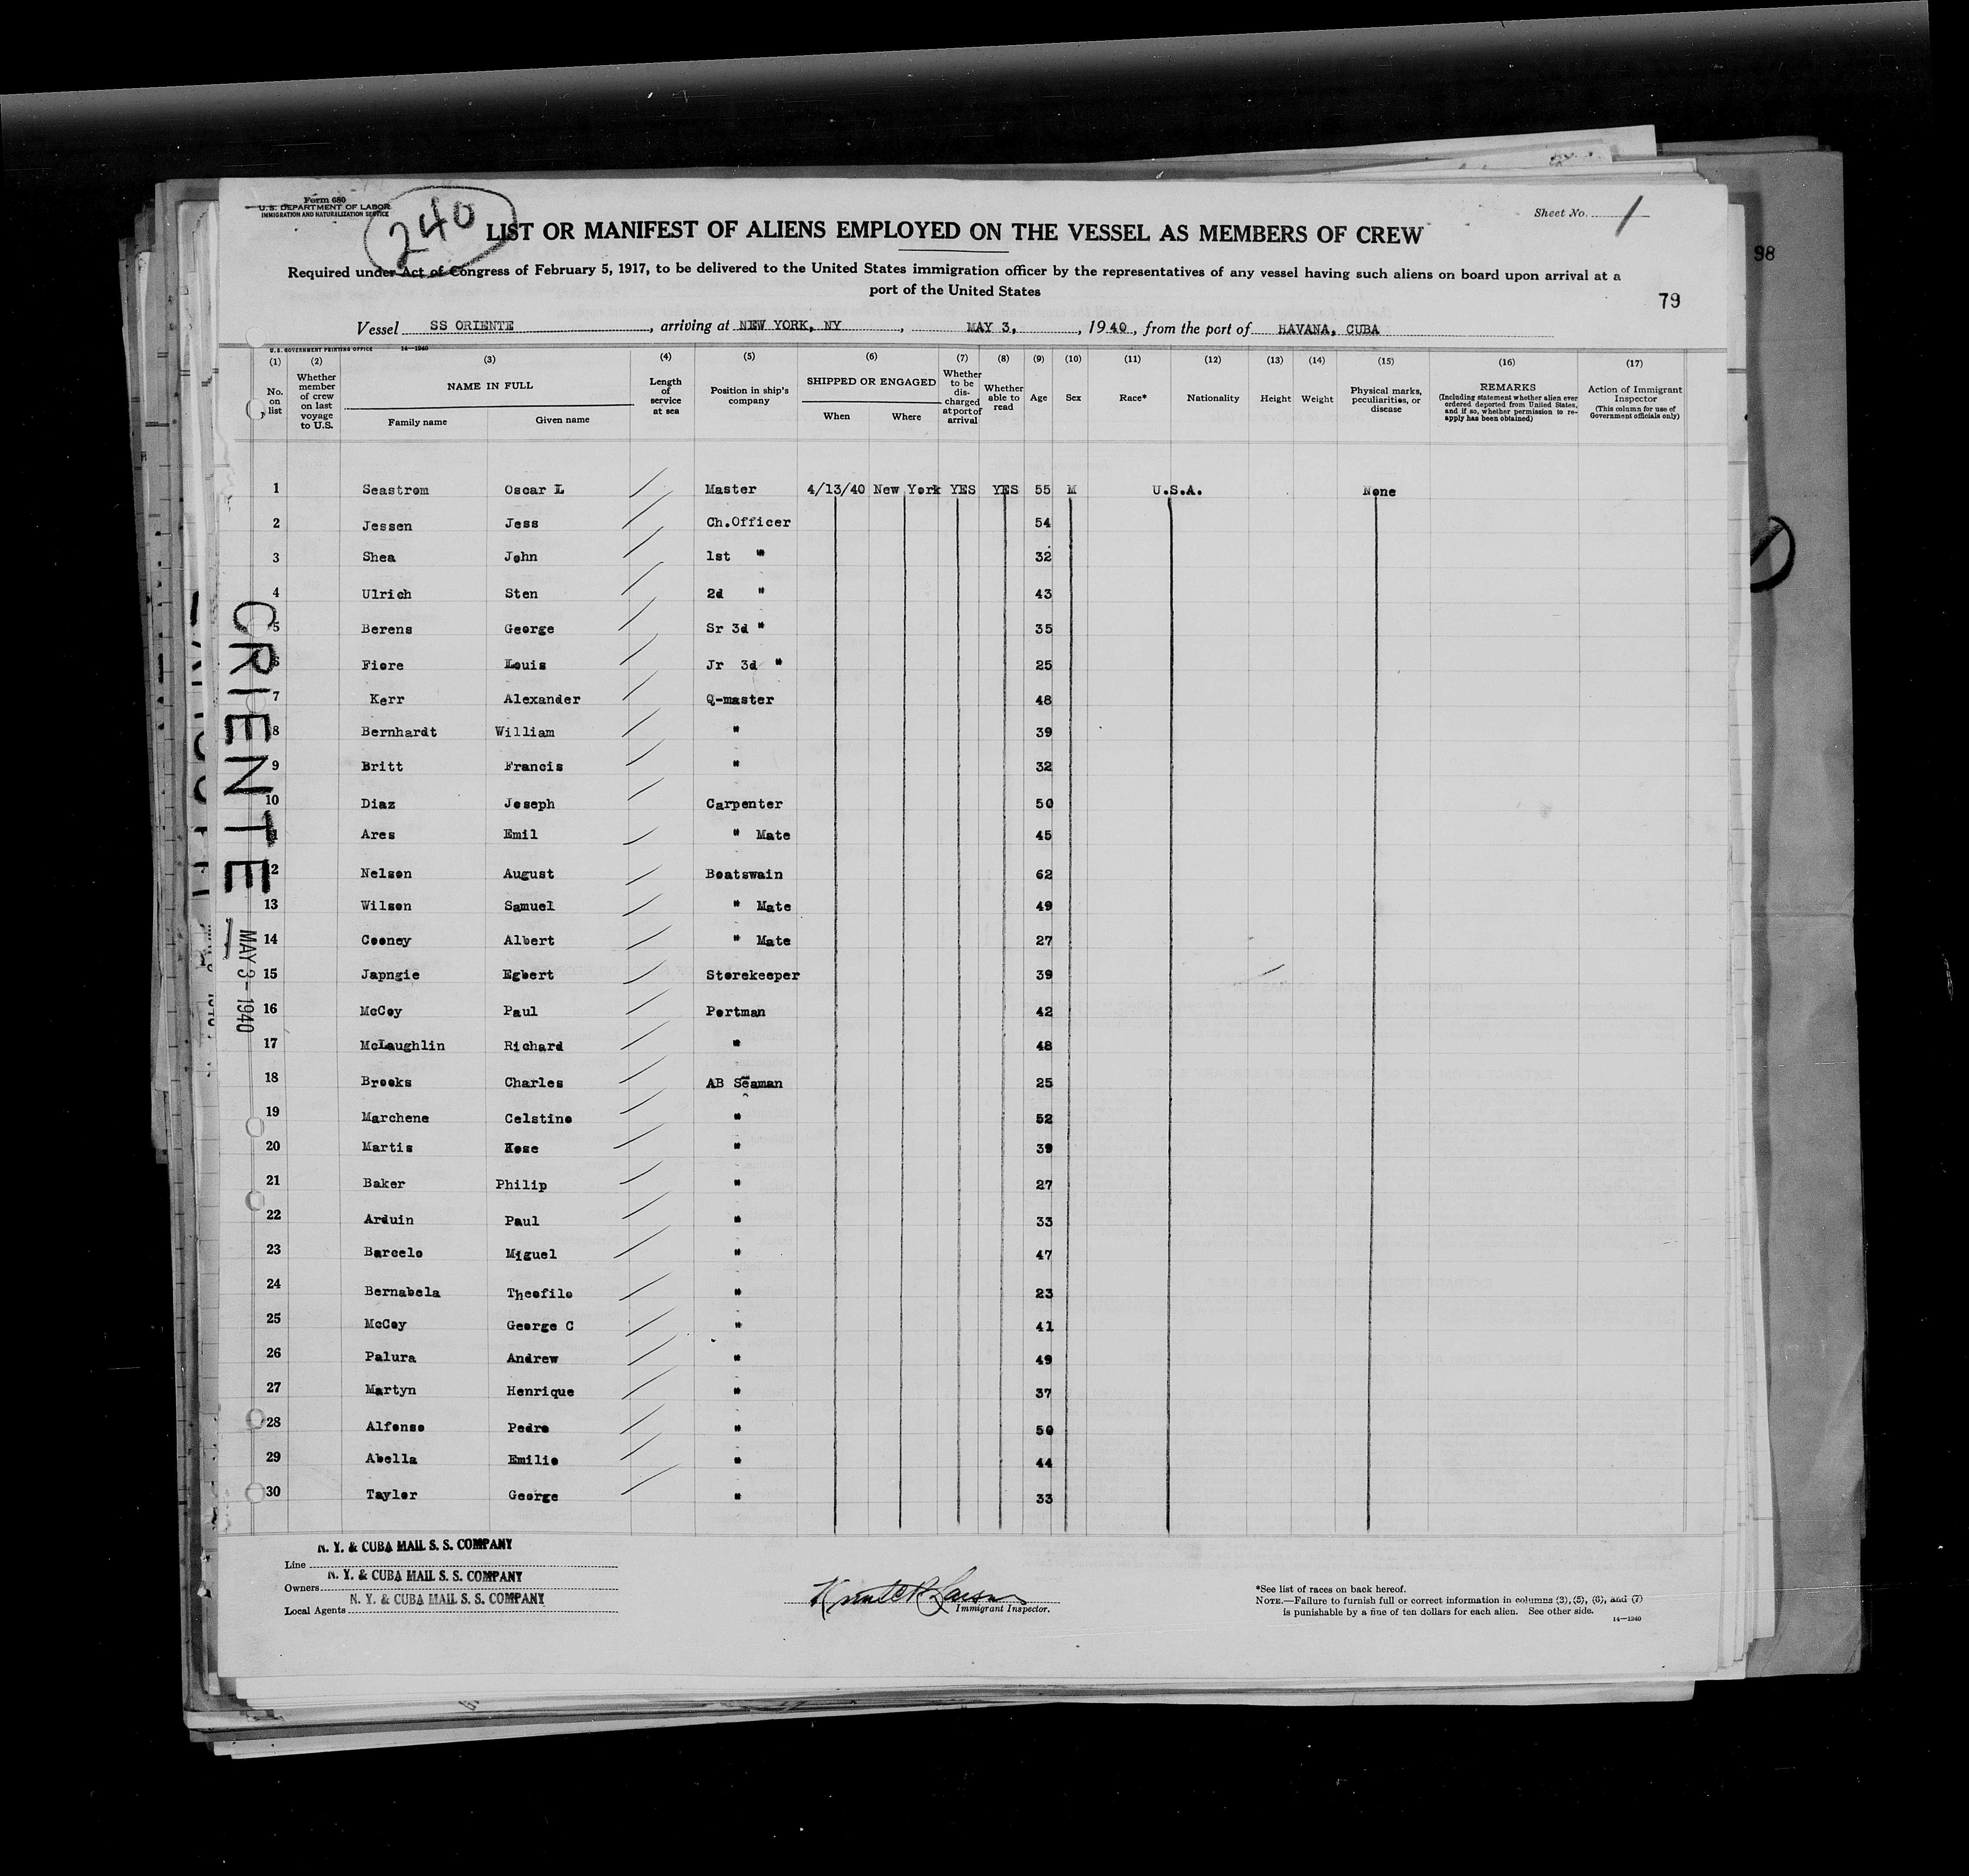 Form 680
U.S. DEPARTMENT OF LABOR
IMMIGRATION AND NATURALIZATION SERVICE
240
Sheet No. 1
LIST OR MANIFEST OF ALIENS EMPLOYED ON THE VESSEL AS MEMBERS OF CREW
98
Required under Act of Congress of February 5, 1917, to be delivered to the United States immigration officer by the representatives of any vessel having such aliens on board upon arrival at a
port of the United States
79
Vessel SS ORIENTE, arriving at NEW YORK, NY, MAY 3, 1940, from the port of HAVANA, CUBA
U.S. GOVERNMENT PRINTING OFFICE 14—1240
(1) (2) (3) (4) (5) (6) (7) (8) (9) (10) (11) (12) (13) (14) (15) (16) (17)
No. on list
Whether member of crew on last voyage to U.S.
NAME IN FULL
Family name Given name
Length of service at sea
Position in ship's company
SHIPPED OR ENGAGED
When Where
Whether to be discharged at port of arrival
Whether able to read
Age
Sex
Race*
Nationality
Height
Weight
Physical marks, peculiarities, or disease
REMARKS
(Including statement whether alien ever ordered deported from United States, and if so, whether permission to re-apply has been obtained)
Action of Immigrant Inspector
(This column for use of Government officials only)
1 Seastrom Oscar L Master 4/13/40 New York YES YES 55 M U.S.A. None
2 Jessen Jess Ch.Officer 54
3 Shea John 1st " 32
4 Ulrich Sten 2d " 43
5 Berens George Sr 3d " 35
6 Fiore Louis Jr 3d " 25
7 Kerr Alexander Q-master 48
8 Bernhardt William " 39
9 Britt Francis " 32
10 Diaz Joseph Carpenter 50
Ares Emil " Mate 45
12 Nelson August Boatswain 62
13 Wilson Samuel " Mate 49
14 Cooney Albert " Mate 27
15 Japngie Egbert Storekeeper 39
16 McCoy Paul Portman 42
17 McLaughlin Richard " 48
18 Brooks Charles AB Seaman 25
19 Marchene Celstino " 52
20 Martis Jose " 39
21 Baker Philip " 27
22 Arduin Paul " 33
23 Barcelo Miguel " 47
24 Bernabela Theofilo " 23
25 McCoy George C " 41
26 Palura Andrew " 49
27 Martyn Henrique " 37
28 Alfonso Pedro " 50
29 Abella Emilio " 44
30 Taylor George " 33
ORIENTE
MAY 3 - 1940
Line N. Y. & CUBA MAIL S. S. COMPANY
Owners N. Y. & CUBA MAIL S. S. COMPANY
Local Agents N. Y. & CUBA MAIL S. S. COMPANY
Immigrant Inspector.
*See list of races on back hereof.
NOTE.—Failure to furnish full or correct information in columns (3), (5), (6), and (7)
is punishable by a fine of ten dollars for each alien. See other side.
14—1240